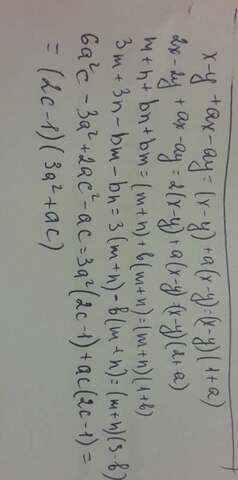 x-y+ax-ay=(x-y)+a(x-y)=(x-y)(1+a)
2x-2y+ax-ay=2(x-y)+a(x-y)=(x-y)(2+a)
m+n+bn+bm=(m+n)+b(m+n)=(m+n)(1+b)
3m+3n-bm-bn=3(m+n)-b(m+n)=(m+n)(3-b)
6a²c-3a²+2ac²-ac=3a²(2c-1)+ac(2c-1)=
=(2c-1)(3a²+ac)